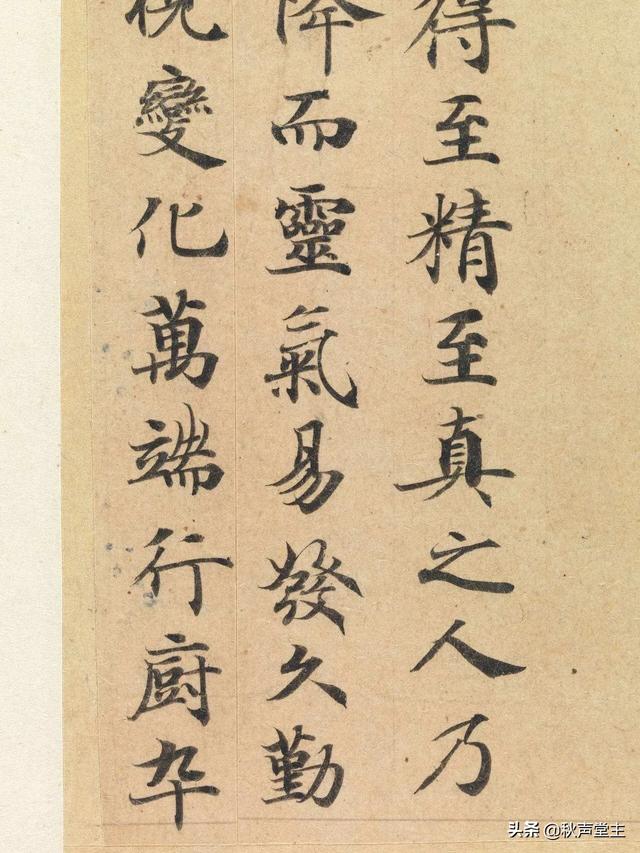 得至精至真之人乃
降而靈氣易發久勤
視變化萬端行廚卒
头条 @秋声堂主